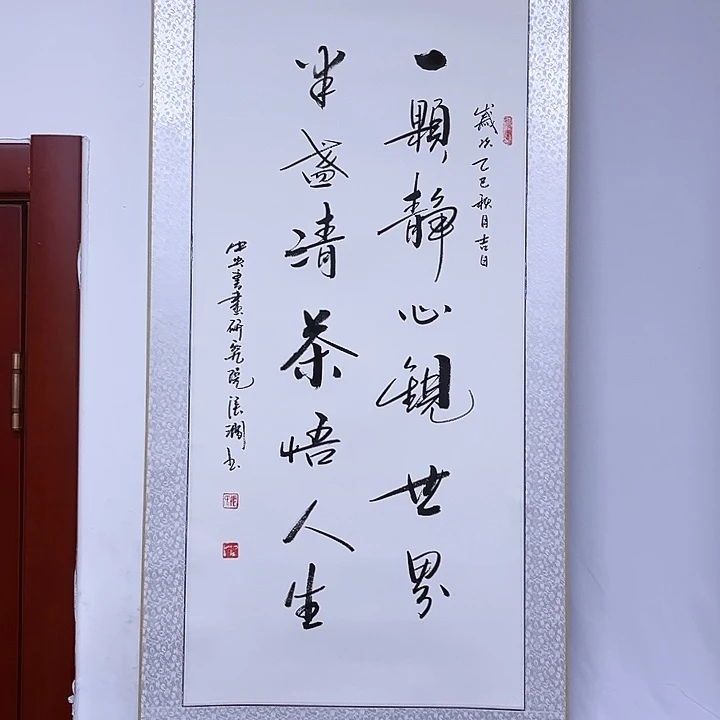 歲次乙巳秋月吉日
一顆靜心觀世界
半盞清茶悟人生
中央書畫研究院張潤書